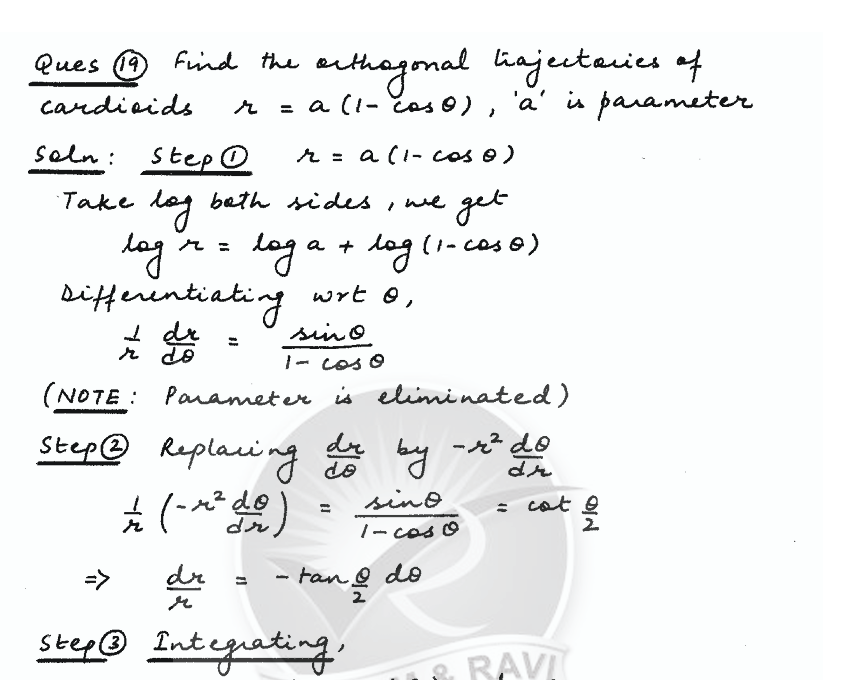 Ques ⑲ Find the orthogonal trajectories of
cardioids r = a (1 - cos θ) , 'a' is parameter
Soln : Step ① r = a (1 - cos θ)
Take log both sides , we get
log r = log a + log (1 - cos θ)
Differentiating wrt θ,
1/r dr/dθ = sin θ / 1 - cos θ
(NOTE : Parameter is eliminated)
Step ② Replacing dr/dθ by -r² dθ/dr
1/r (-r² dθ/dr) = sin θ / 1 - cos θ = cot θ/2
=> dr/r = - tan θ/2 dθ
Step ③ Integrating,
& RAVI